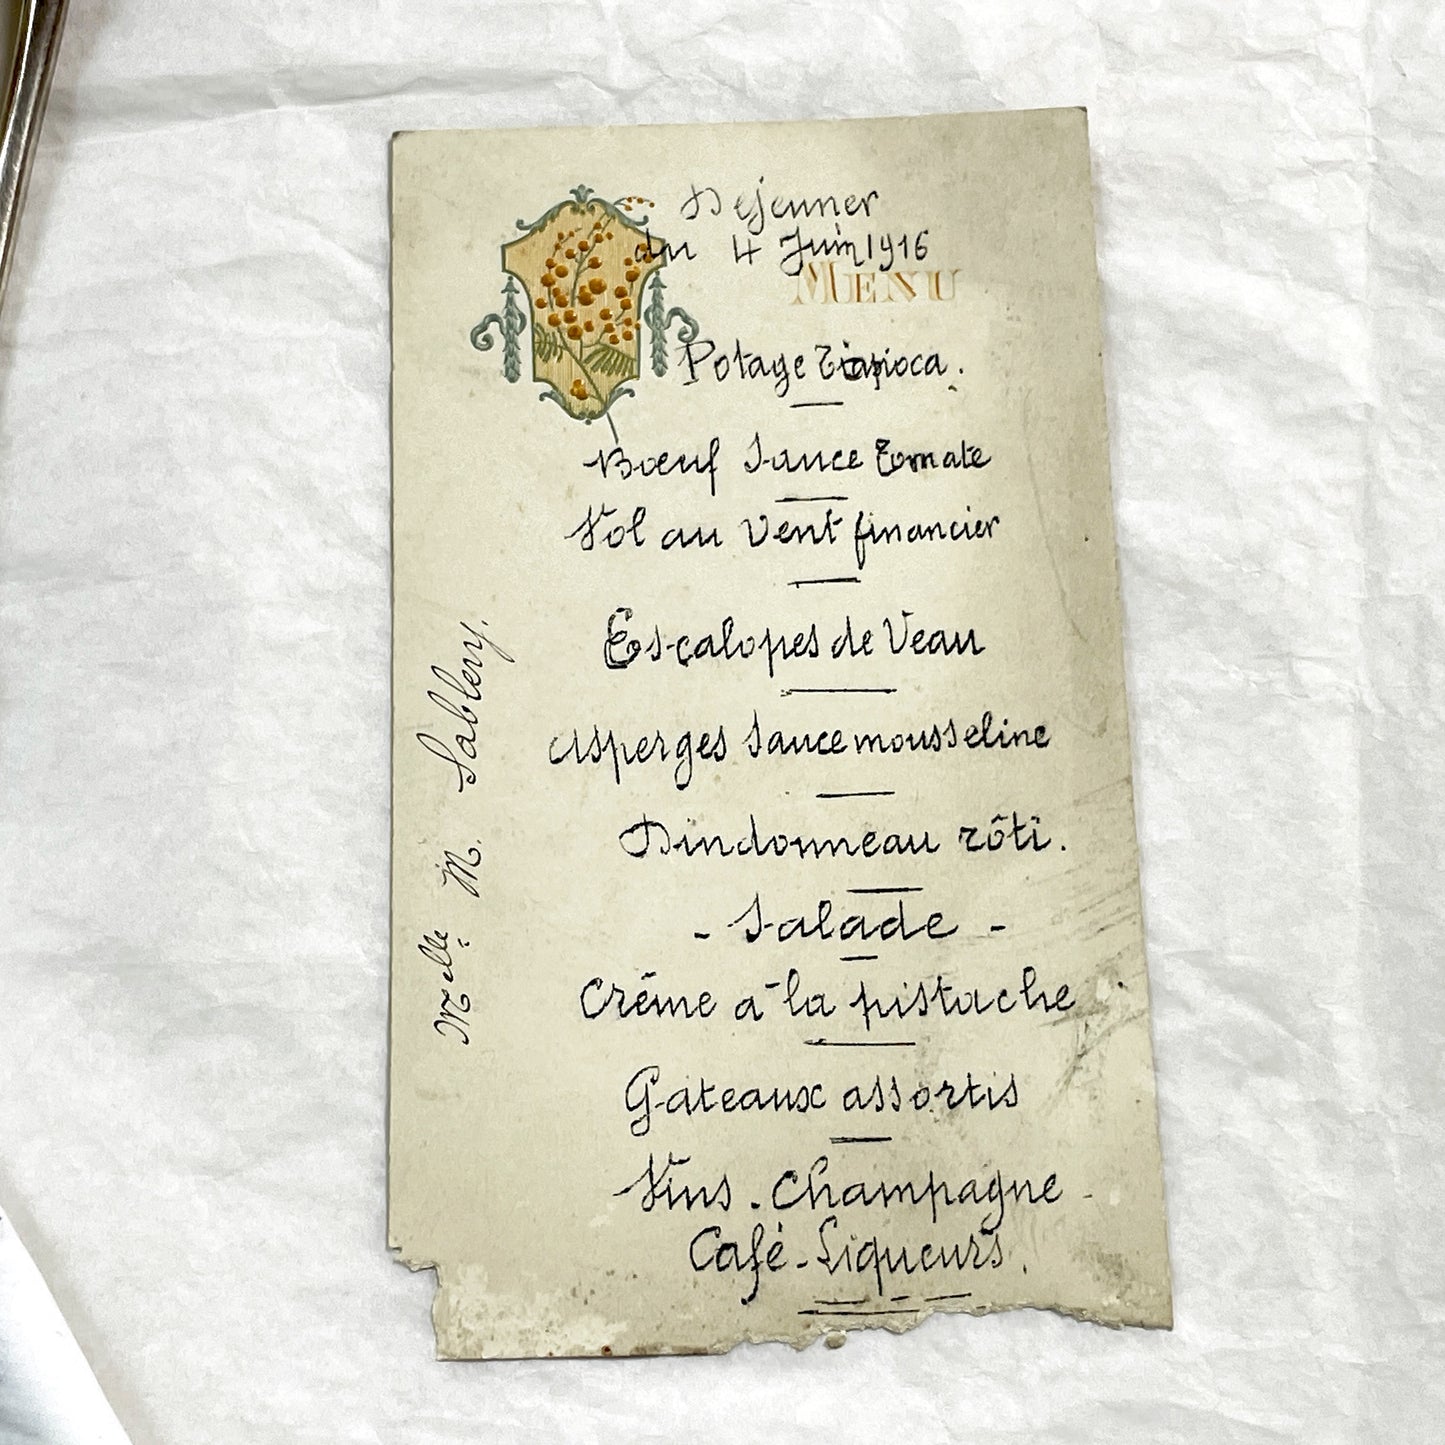 Dejeuner
du 4 Juin 1916
MENU
Potage Tapioca.
Bœuf Sauce Tomate
Vol au Vent financier
Escalopes de Veau
Asperges Sauce mousseline
Dindonneau rôti.
- Salade -
Crême a la pistache
Gateaux assortis
Vins - Champagne -
Café - Liqueurs.
Melle M. Sablery.